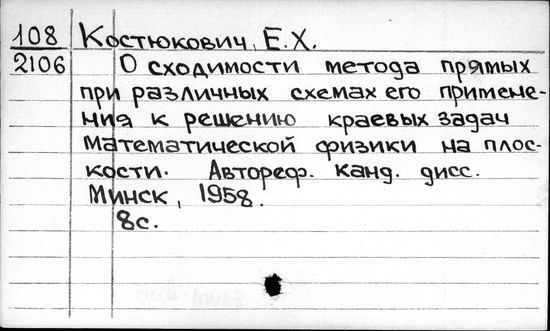 108 Костюкович, Е.Х.
2106 О сходимости метода прямых
при различных схемах его примене-
ния к решению краевых задач
математической физики на плос-
кости. Автореф. канд. дисс.
Минск, 1958.
8с.